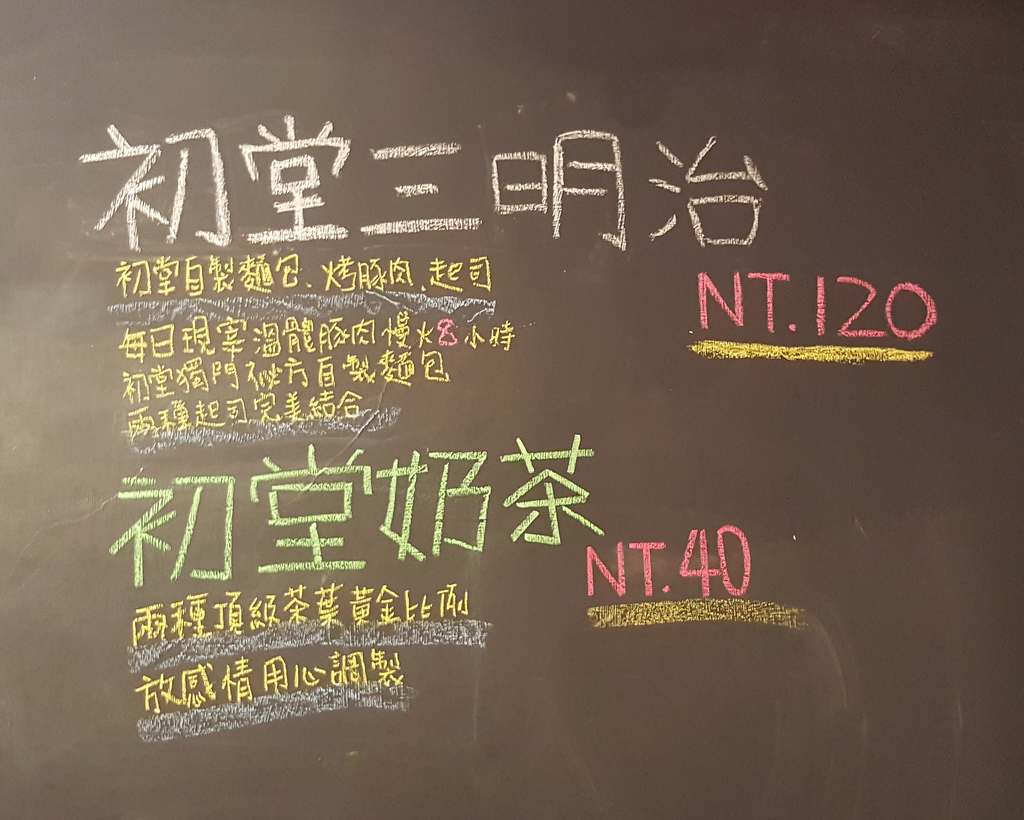 初堂三明治
初堂自製麵包.烤豚肉.起司
NT.120
每日現宰溫體豚肉慢火8小時
初堂獨門秘方自製麵包
兩種起司完美結合
初堂奶茶
NT.40
兩種頂級茶葉黃金比例
放感情用心調製